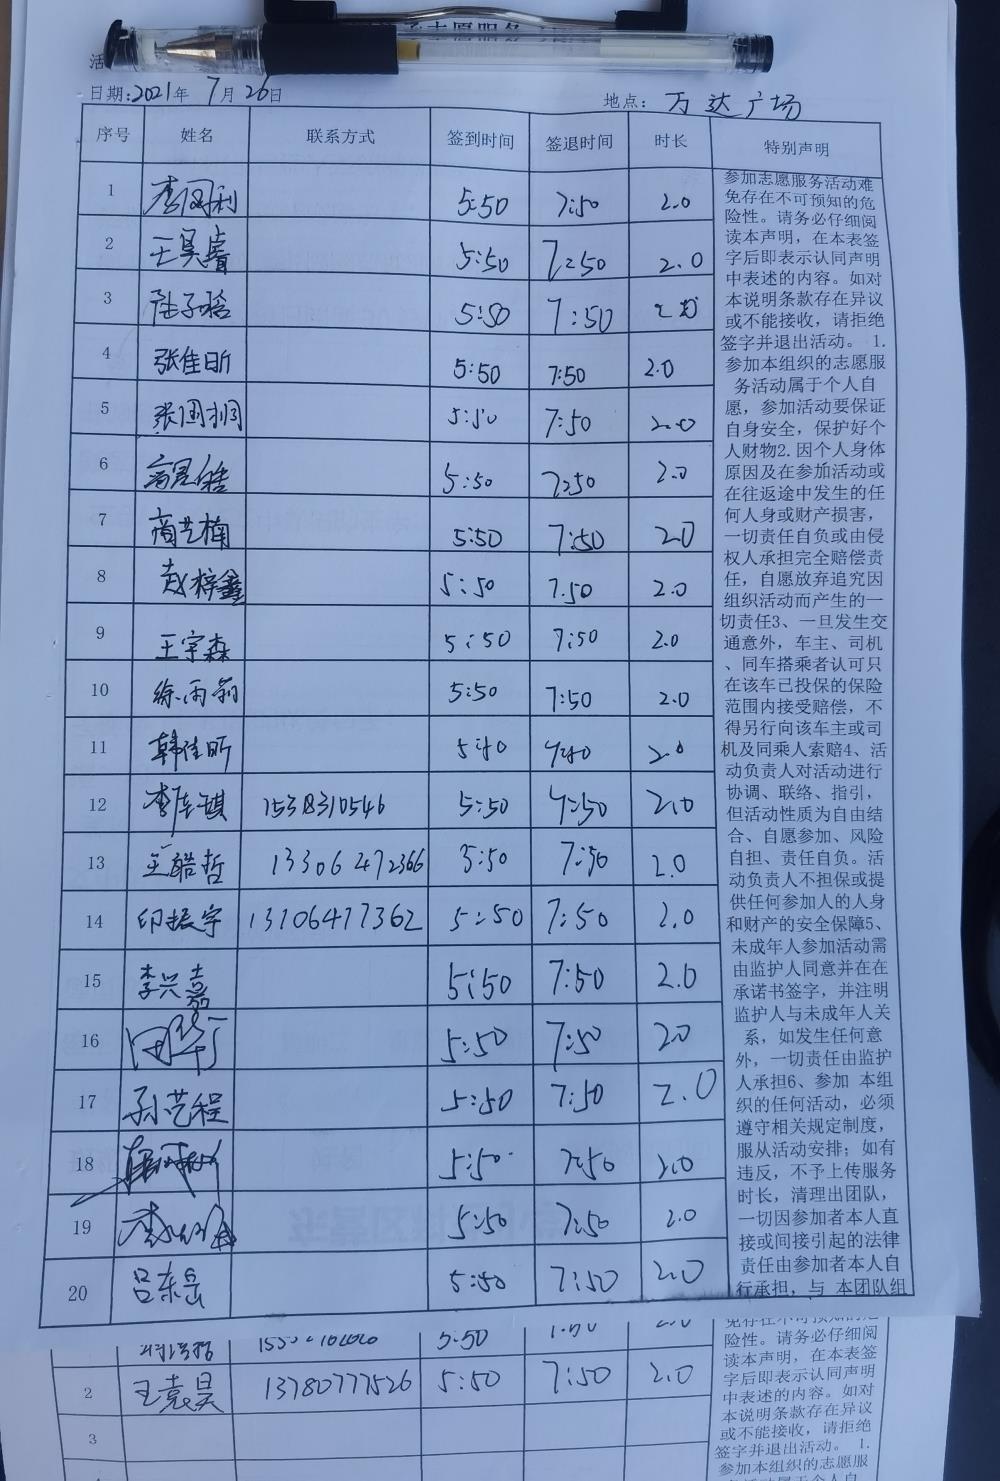 活
日期:2021年 7月26日 地点: 万达广场
序号 姓名 联系方式 签到时间 签退时间 时长 特别声明
1 李国利 5:50 7:50 2.0
2 王昊睿 5:50 7:50 2.0
3 陆子晗 5:50 7:50 2.0
4 张佳昕 5:50 7:50 2.0
5 5:50 7:50 2.0
6 5:50 7:50 2.0
7 商艺楠 5:50 7:50 2.0
8 赵梓鑫 5:50 7.50 2.0
9 王宇森 5:50 7:50 2.0
10 徐雨莉 5:50 7:50 2.0
11 韩佳昕 2.0
12 1538310546 5:50 7:50 2.0
13 王皓哲 13306472366 5:50 7:50 2.0
14 印振宇 13106477362 5:50 7:50 2.0
15 李兴嘉 5:50 7:50 2.0
16 5:50 7:50 2.0
17 孙艺程 5:50 7:50 2.0
18 5:50 7:50 2.0
19 5:50 7:50 2.0
20 吕东岳 5:50 7:50 2.0
参加志愿服务活动难
免存在不可预知的危
险性。请务必仔细阅
读本声明，在本表签
字后即表示认同声明
中表述的内容。如对
本说明条款存在异议
或不能接收，请拒绝
签字并退出活动。 1.
参加本组织的志愿服
务活动属于个人自
愿，参加活动要保证
自身安全，保护好个
人财物2.因个人身体
原因及在参加活动或
在往返途中发生的任
何人身或财产损害，
一切责任自负或由侵
权人承担完全赔偿责
任，自愿放弃追究因
组织活动而产生的一
切责任3、一旦发生交
通意外，车主、司机
、同车搭乘者认可只
在该车已投保的保险
范围内接受赔偿，不
得另行向该车主或司
机及同乘人索赔4、活
动负责人对活动进行
协调、联络、指引，
但活动性质为自由结
合、自愿参加、风险
自担、责任自负。活
动负责人不担保或提
供任何参加人的人身
和财产的安全保障5、
未成年人参加活动需
由监护人同意并在在
承诺书签字，并注明
监护人与未成年人关
系，如发生任何意
外，一切责任由监护
人承担6、参加 本组
织的任何活动，必须
遵守相关规定制度，
服从活动安排；如有
违反，不予上传服务
时长，清理出团队，
一切因参加者本人直
接或间接引起的法律
责任由参加者本人自
行承担，与 本团队组
5:50
2 王袁昊 13780777526 5:50 7:50 2.0
3
险性。请务必仔细阅
读本声明，在本表签
字后即表示认同声明
中表述的内容。如对
本说明条款存在异议
或不能接收，请拒绝
签字并退出活动。 1.
参加本组织的志愿服